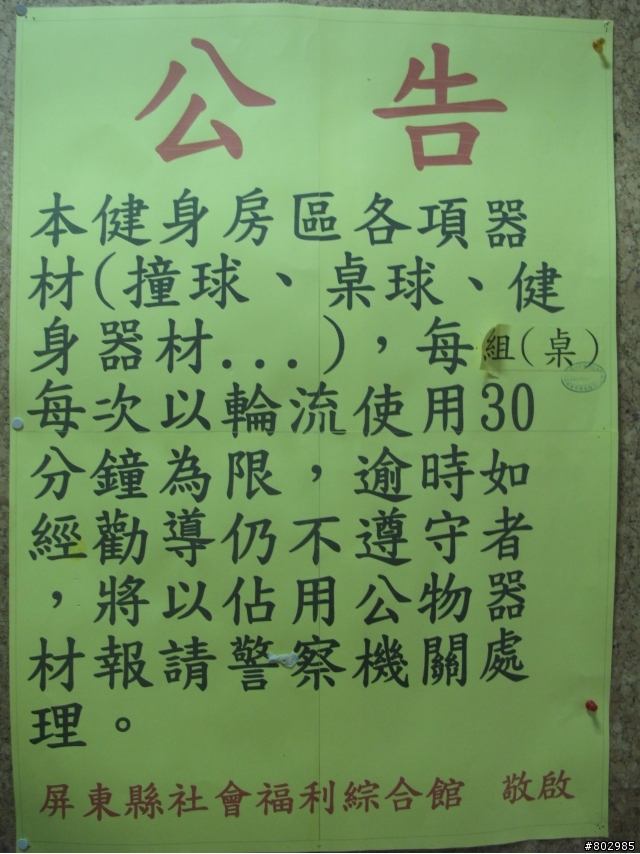 公告
本健身房區各項器
材(撞球、桌球、健
身器材...)，每組(桌)
每次以輪流使用30
分鐘為限，逾時如
經勸導仍不遵守者
，將以佔用公物器
材報請警察機關處
理。
屏東縣社會福利綜合館 敬啟
#802985